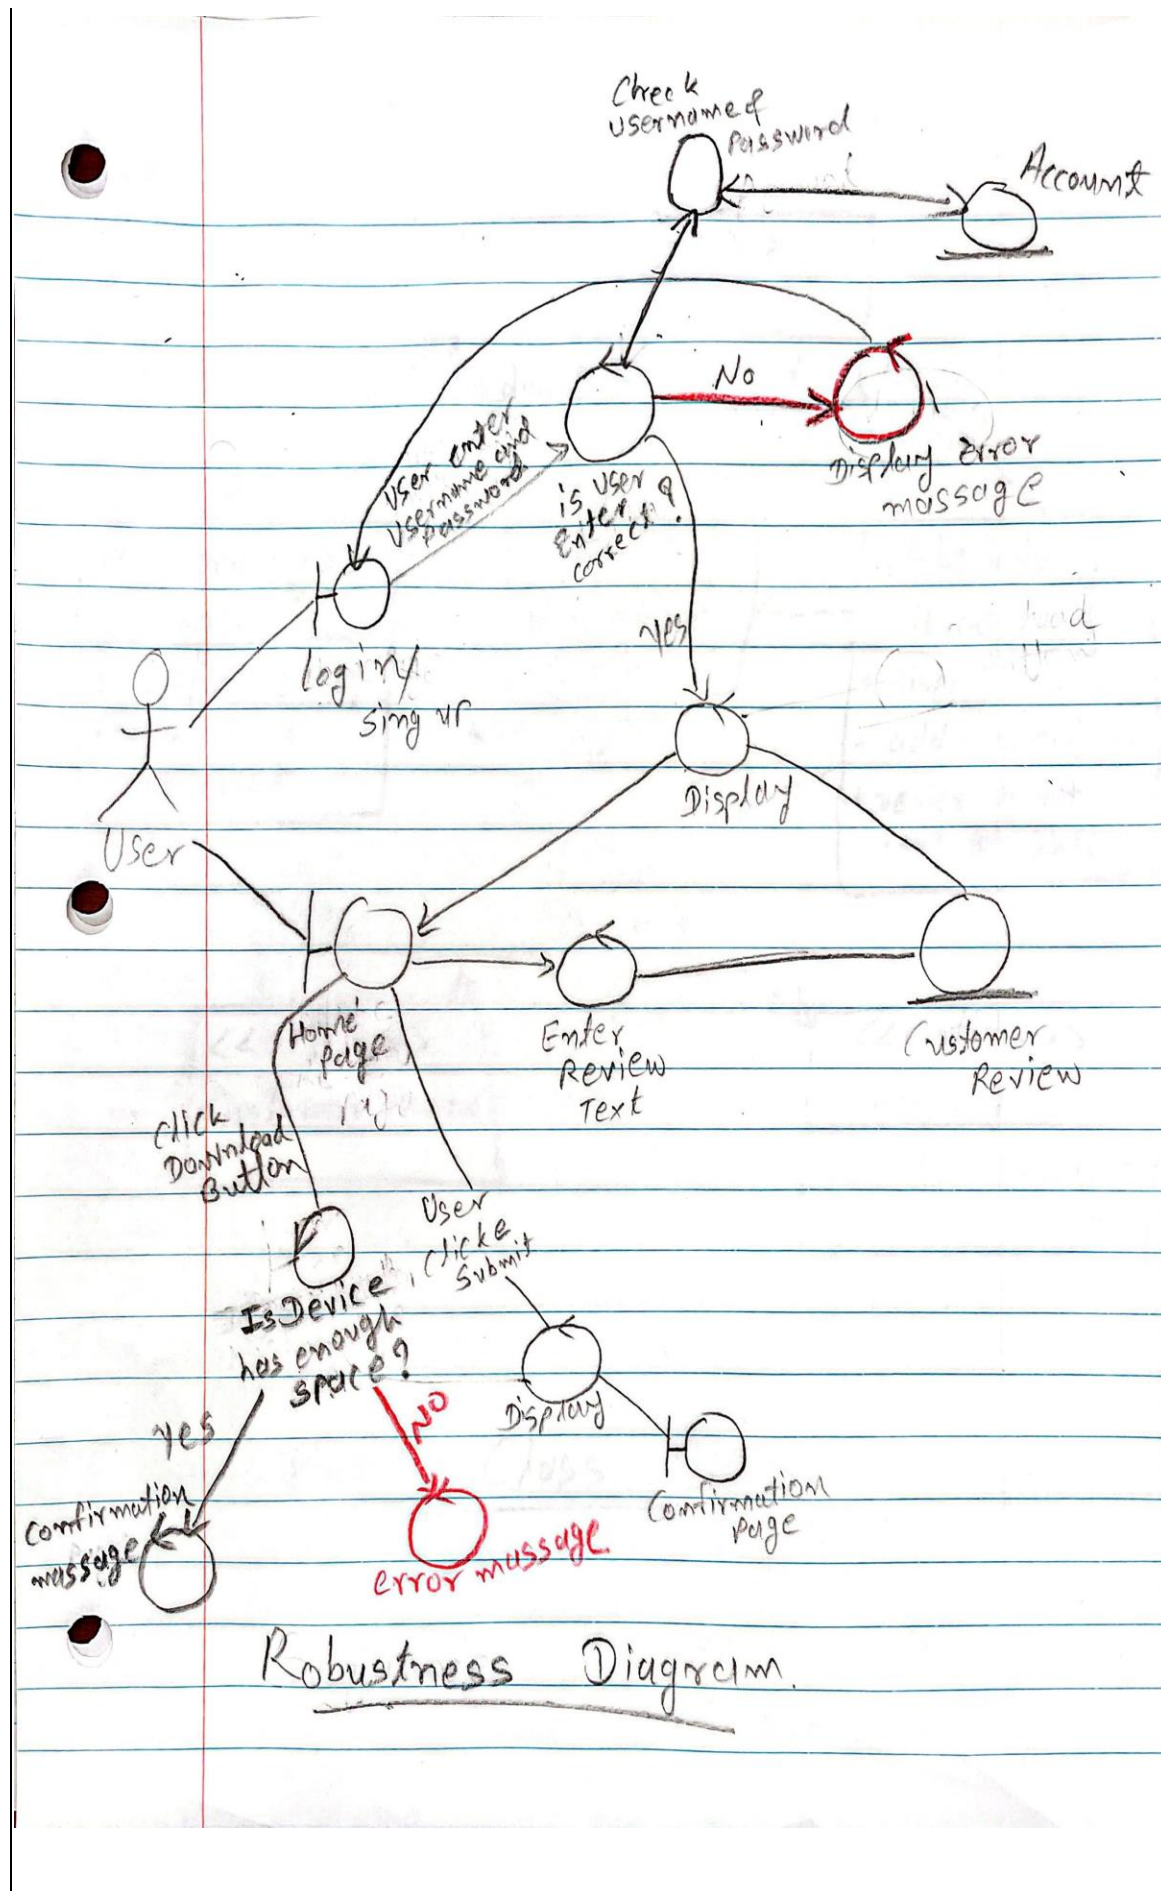 Check
username &
Password
Account
No
Display Error
massage
User enter
Username and
Password
is user
Enter
correct?
yes
login/
sing up
Display
User
Home
Page
Enter
Review
Text
Customer
Review
Click
Download
Button
User
Clicke
Submit
Is Device
has enough
space?
Yes
NO
Display
Confirmation
massage
error massage
Confirmation
Page
Robustness Diagram.